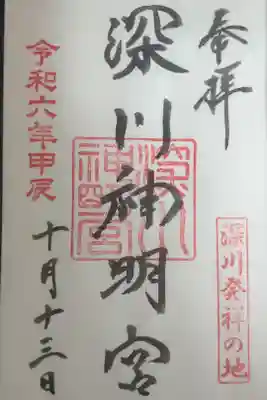 奉拝
深川発祥の地
深川神明宮
深川神明宮
令和六年甲辰
十月十三日